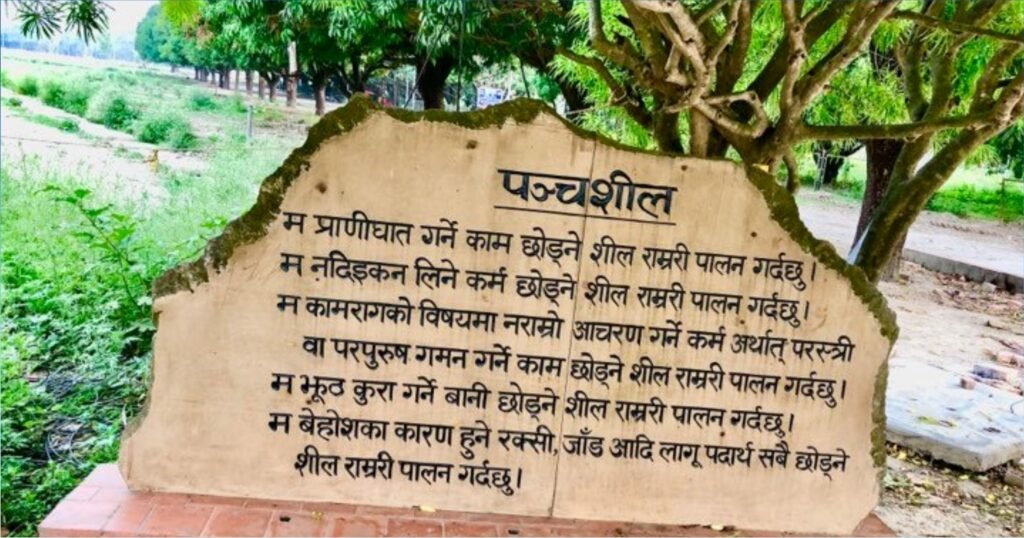 पञ्चशील
म प्राणीघात गर्ने काम छोड्ने शील राम्ररी पालन गर्दछु।
म नदिइकन लिने कर्म छोड्ने शील राम्ररी पालन गर्दछु।
म कामरागको विषयमा नराम्रो आचरण गर्ने कर्म अर्थात् परस्त्री
वा परपुरुष गमन गर्ने काम छोड्ने शील राम्ररी पालन गर्दछु।
म झूठ कुरा गर्ने बानी छोड्ने शील राम्ररी पालन गर्दछु।
म बेहोशका कारण हुने रक्सी, जाँड आदि लागू पदार्थ सबै छोड्ने
शील राम्ररी पालन गर्दछु।